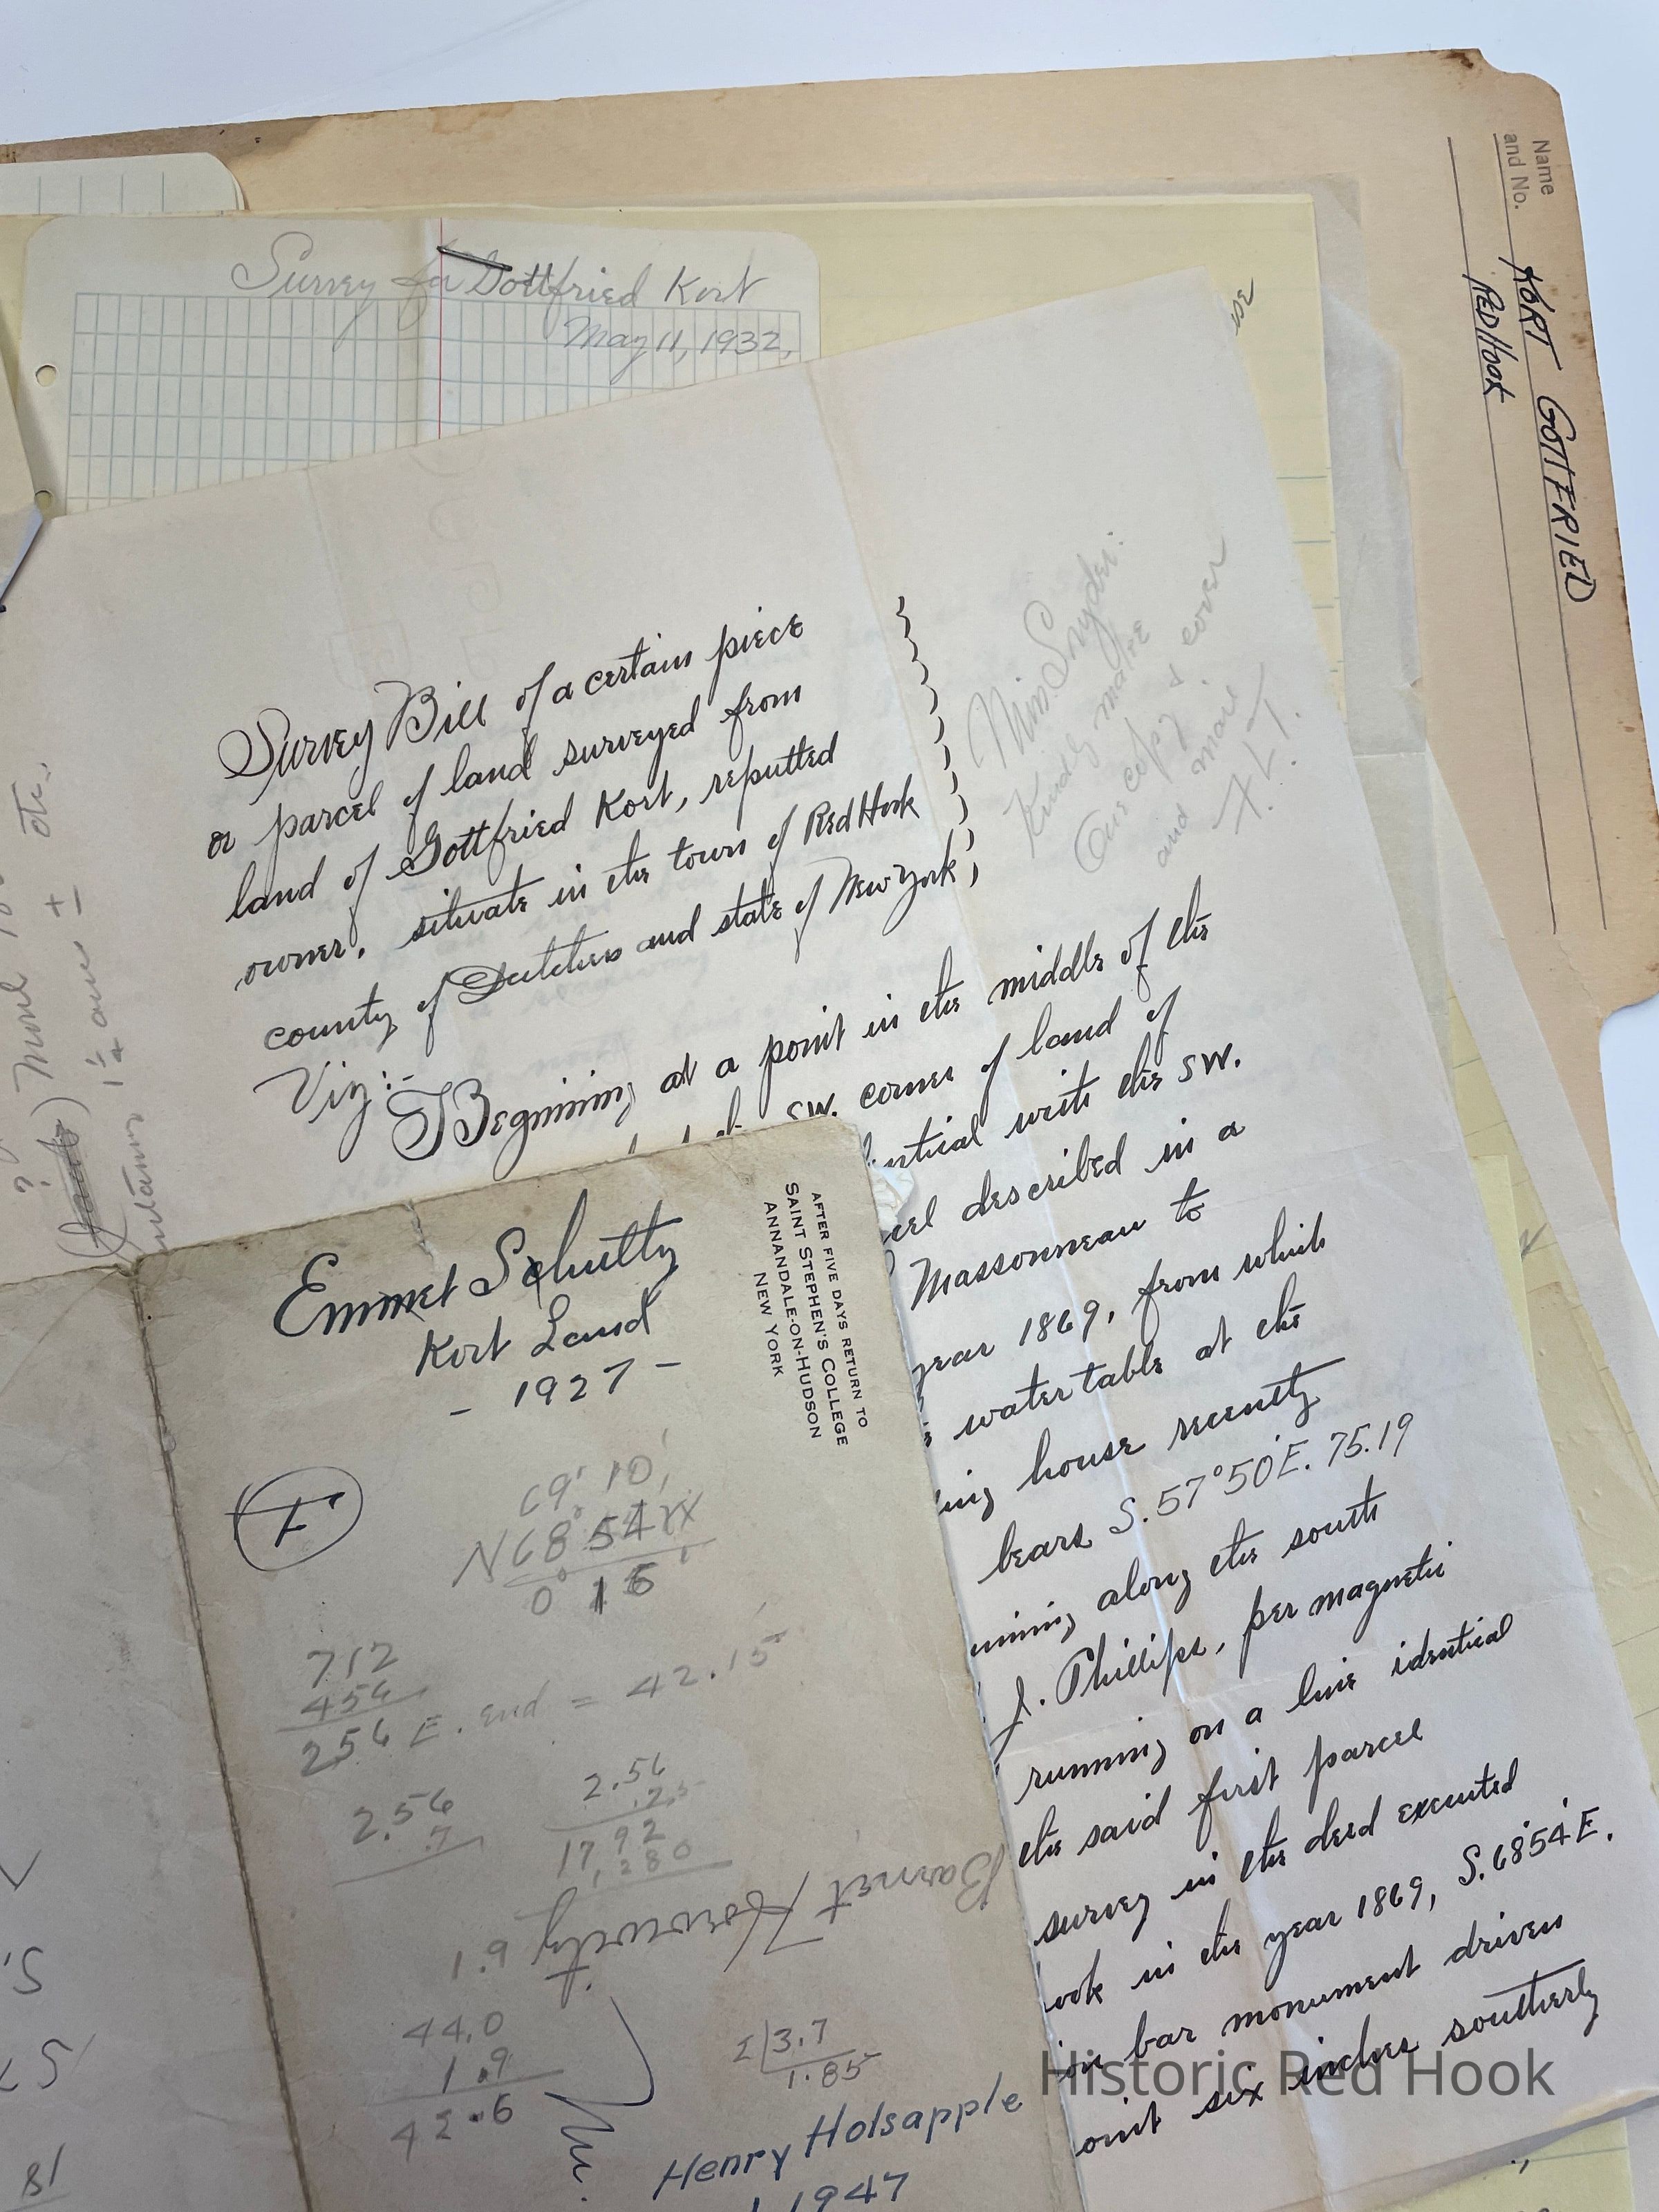 Name
and No.
KORT GOTTFRIED
RED HOOK
Survey for Gottfried Kort
May 11, 1932,
Survey Bill of a certain piece
or parcel of land surveyed from
land of Gottfried Kort, reputted
owner. situate in the town of Red Hook
county of Dutchess and state of New York,
Viz:-
Beginning at a point in the middle of the
SW. corner of land of
with the SW.
described in a
Massonneau to
year 1869, from which
water table at the
house recently
bears S. 57° 50' E. 75.19
along the south
J. Phillips, per magnetic
running on a line identical
the said first parcel
survey in the deed executed
in the year 1869, S. 68° 54' E.
bar monument driven
six inches southerly
Miss Snyder:
Kindly make
one copy & cover
and mail
1 1/4 acre ±
etc.
AFTER FIVE DAYS RETURN TO
SAINT STEPHEN'S COLLEGE
ANNANDALE-ON-HUDSON
NEW YORK
Emmet Schultz
Kort Land
- 1927 -
69° 10'
N 68° 54'
0° 16'
712
456
256 E. end = 42.15
2.56
.7
2.56
1792
1,280
Barnet Horowitz
1.9
44.0
1.9
42.6
2 3.7
1.85
Henry Holsapple
1947
Historic Red Hook